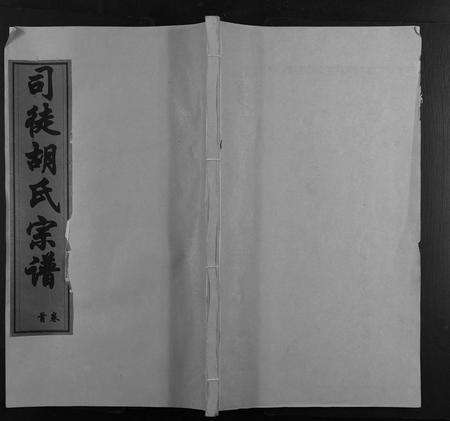 司徒胡氏宗谱
卷首